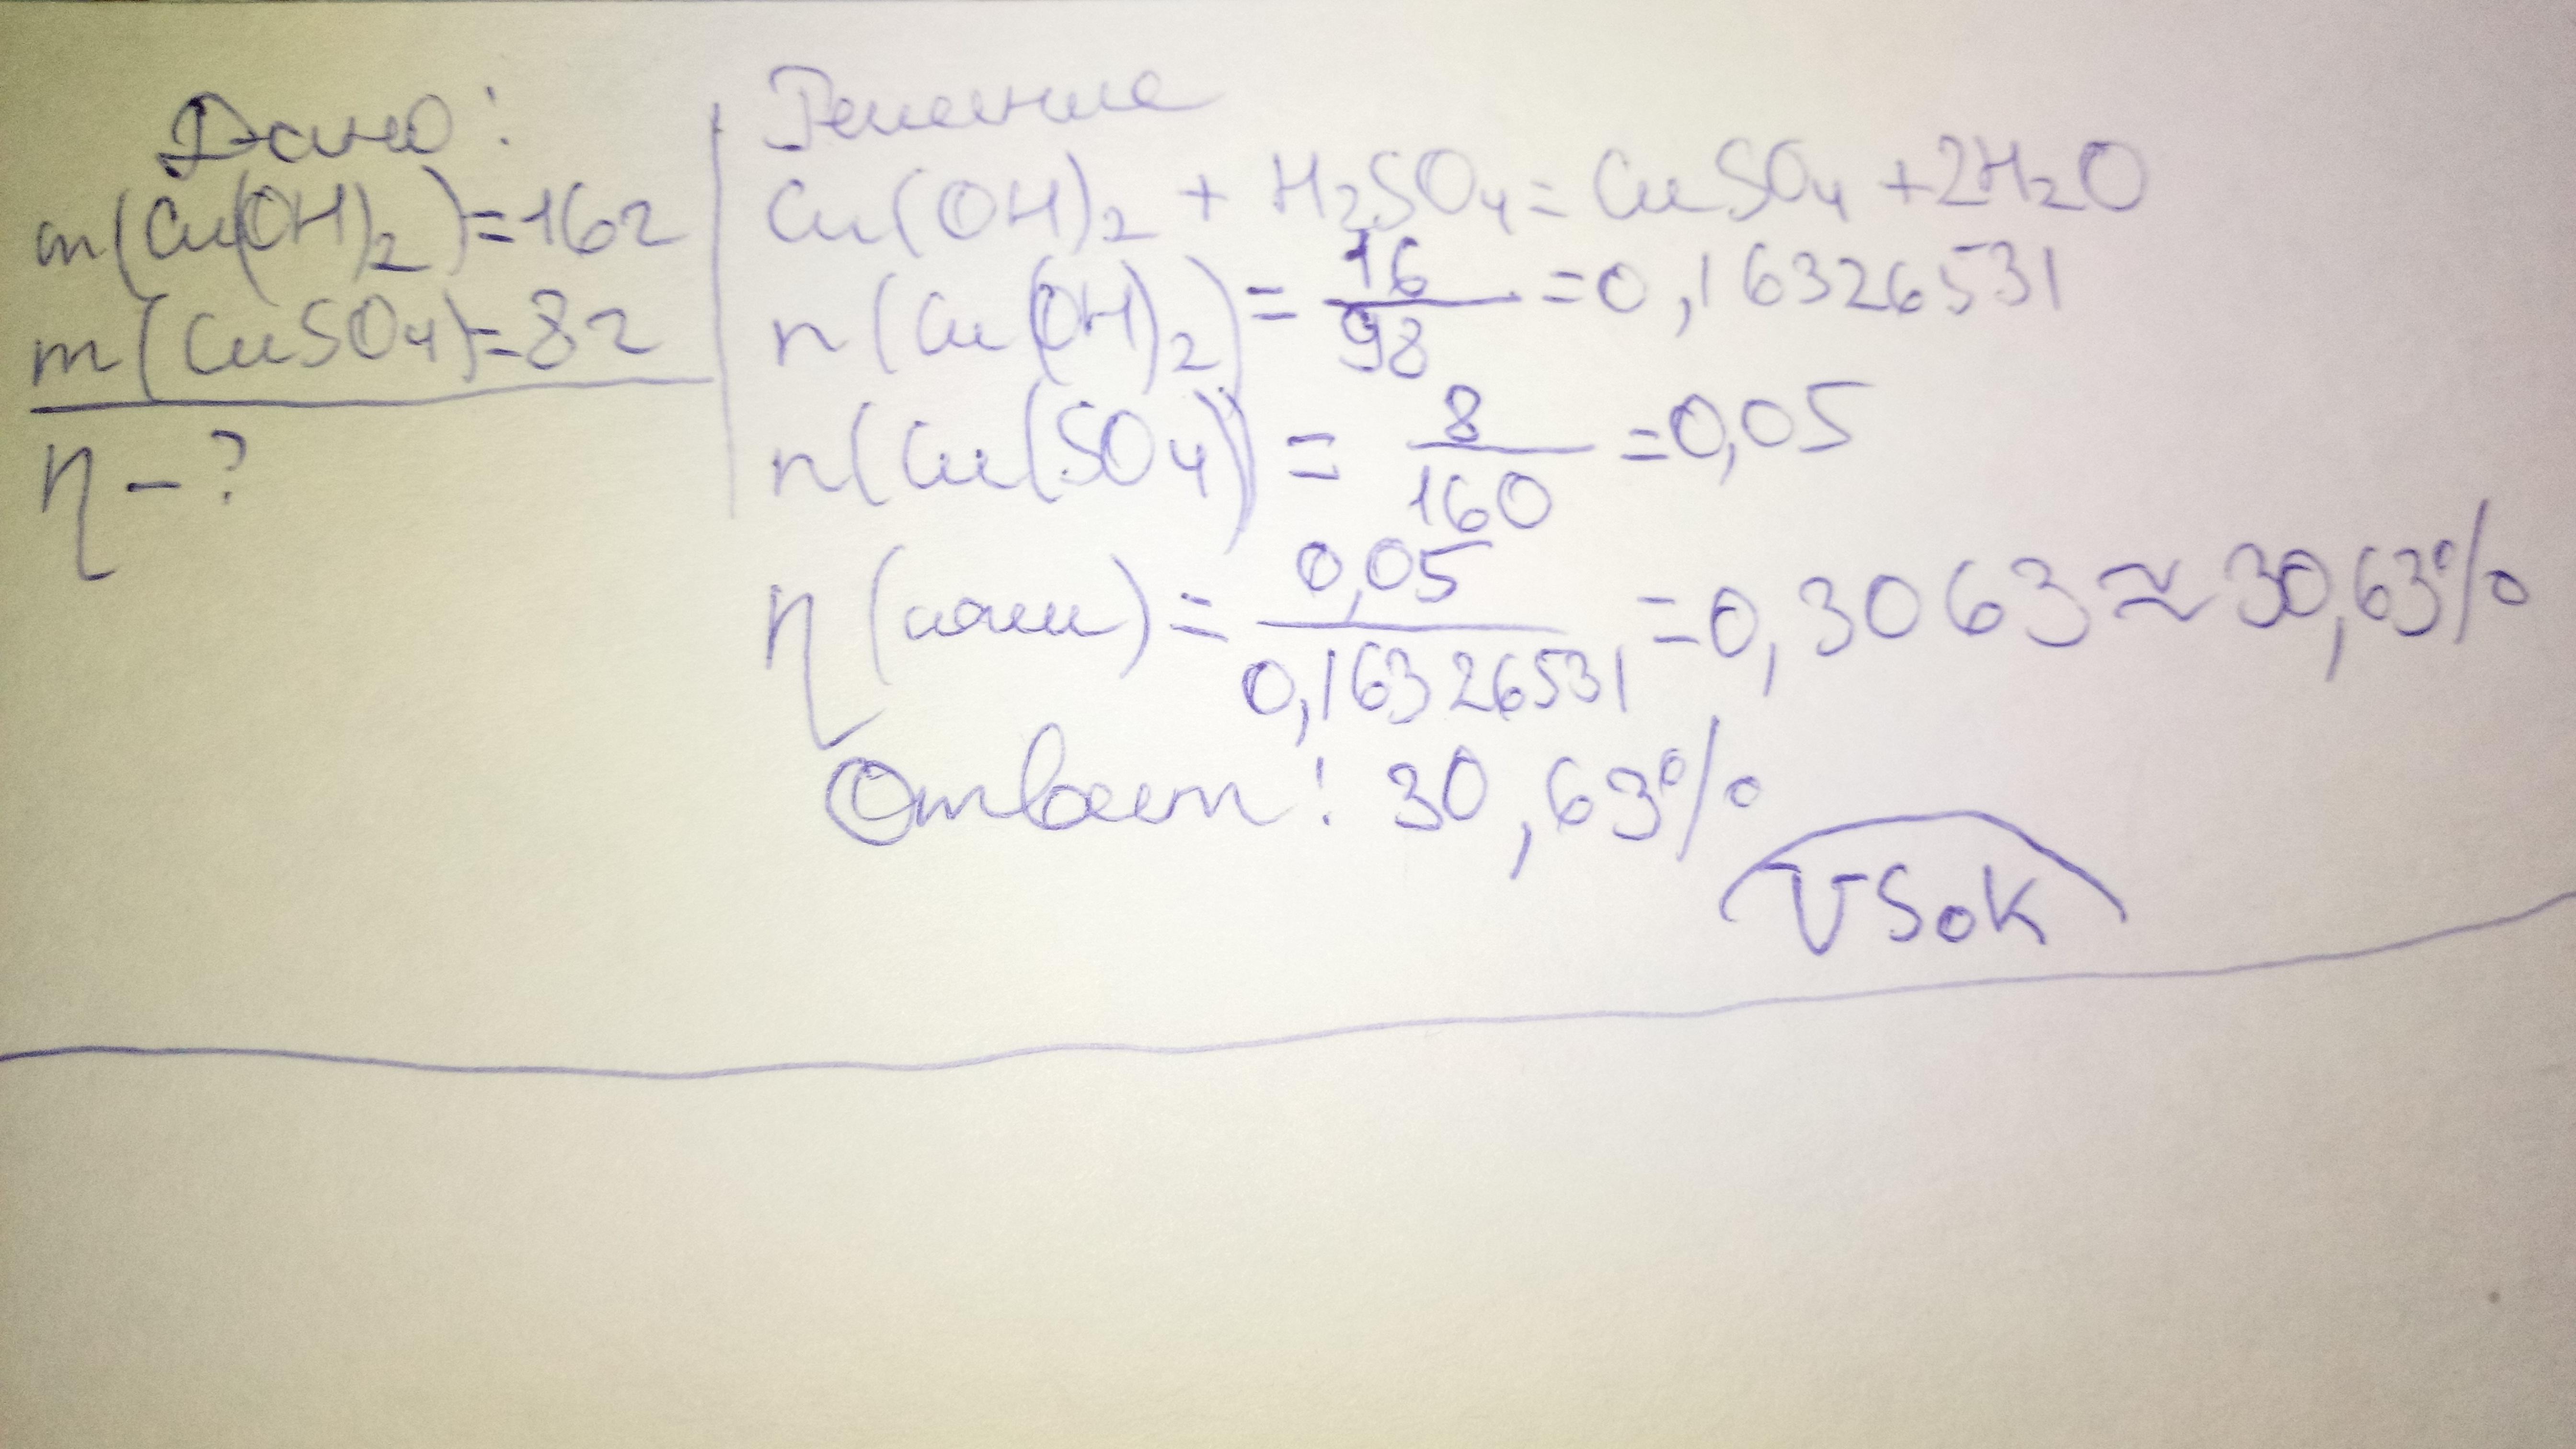 Дано:
m(Cu(OH)2)=16г
m(CuSO4)=8г
η-?
Решение
Cu(OH)2 + H2SO4 = CuSO4 + 2H2O
n(Cu(OH)2) = 16/98 = 0,16326531
n(Cu(SO4)) = 8/160 = 0,05
η( ) = 0,05/0,16326531 = 0,3063 ≈ 30,63%
Ответ: 30,63%
VSOK